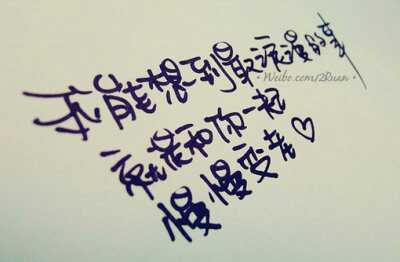 我能想到最浪漫的事
• Weibo.com/2Ruan •
就是和你一起
慢慢变老♡